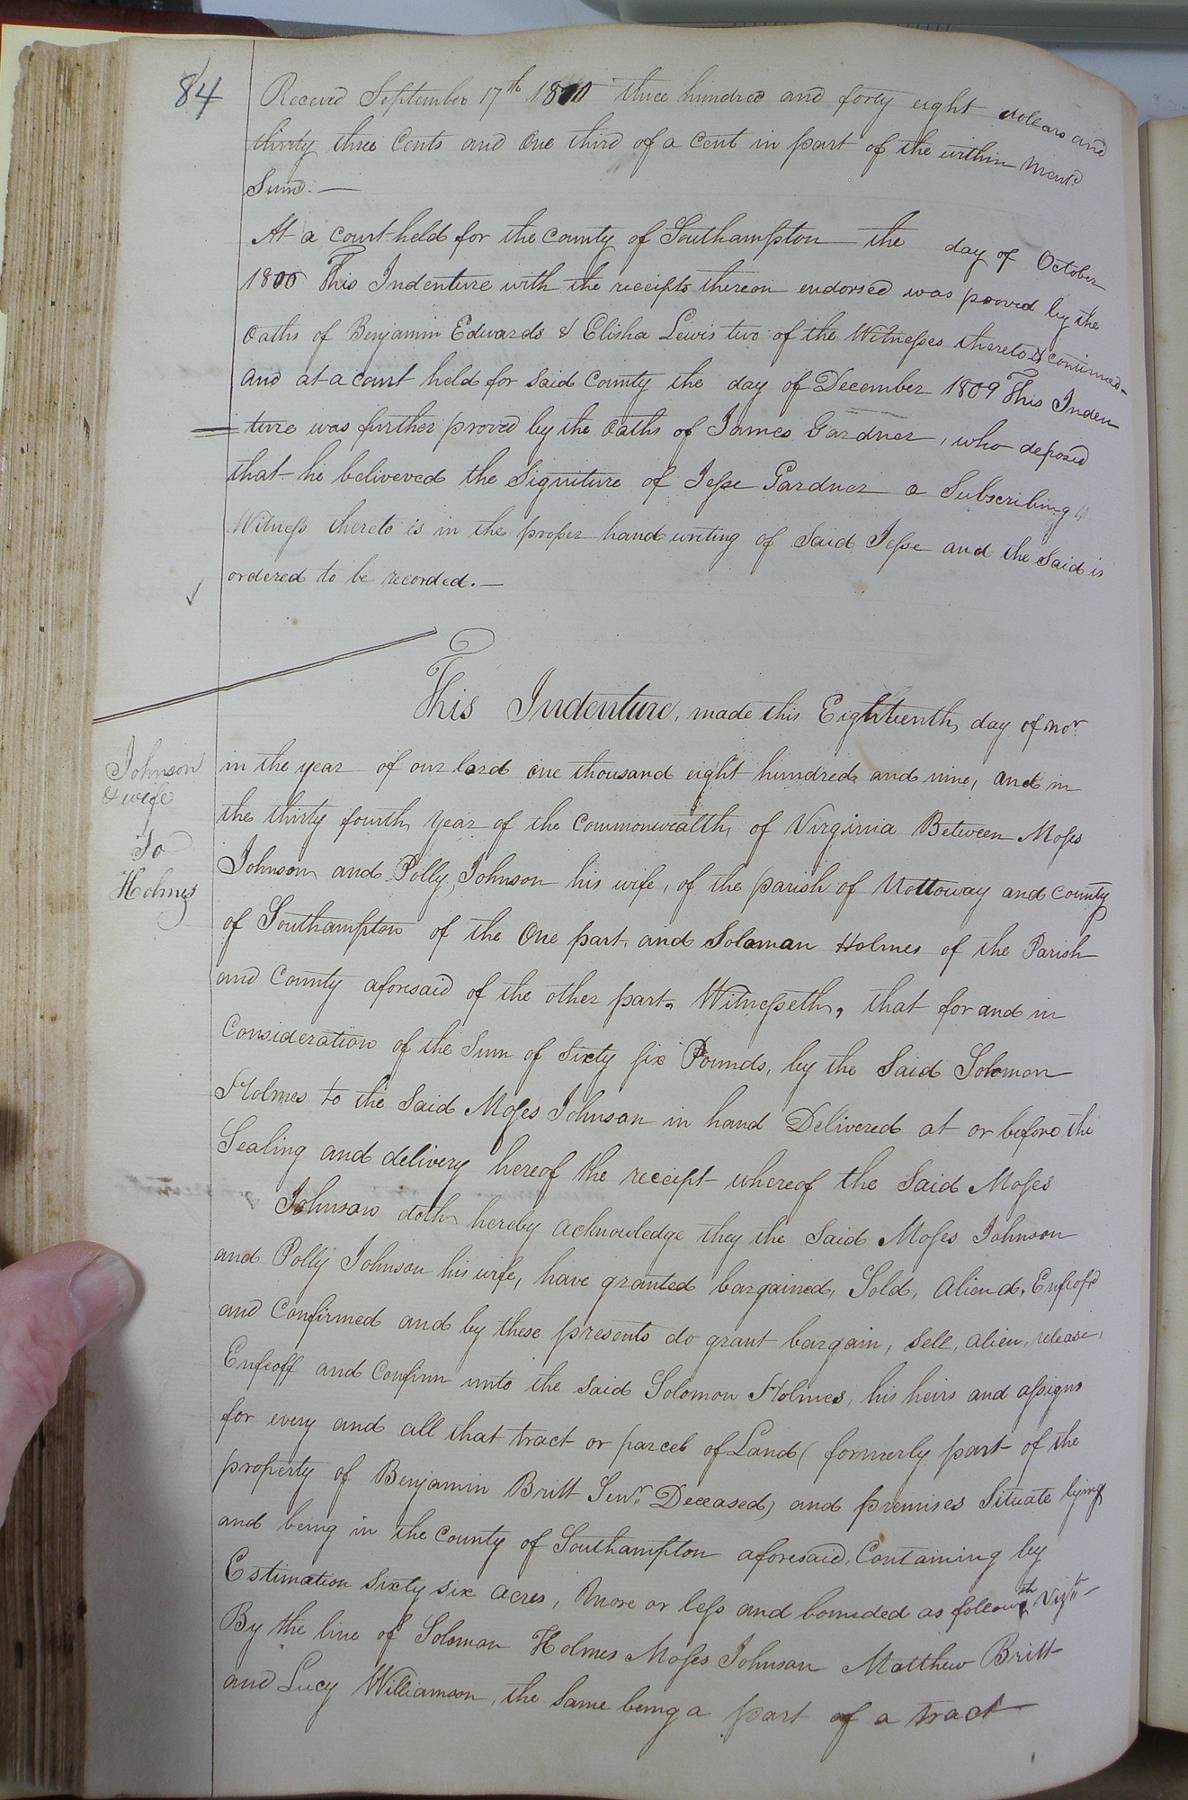 84
Received September 17th 1800 three hundred and forty eight dollars and
thirty three Cents and One third of a Cent in part of the within Ment.d
Sum.—
At a court held for the county of Southampton the day of October
1800 This Indenture with the receipts thereon endorsed was prooved by the
Oaths of Benjamin Edwards & Elisha Lewis two of the Witnesses thereto & continued-
and at a court held for said County the day of December 1809 This Inden
=ture was further proved by the Oaths of James Gardner, who deposed
that he beliveved the Signiture of Jesse Gardner a Subscribing
Witness thereto is in the proper hand writing of Said Jesse and the Said is
ordered to be recorded.—
This Indenture, made this Eighteenth day of Nov.r
Johnson
& wife
To
Holmes
in the year of our lord one thousand eight hundred and nine, and in
the thirty fourth Year of the Commonwealth, of Virginia Between Moses
Johnson and Polly Johnson his wife, of the parish of Nottoway and County
of Southampton of the One part, and Soloman Holmes of the Parish
and County aforesaid of the other part, Witnesseth, that for and in
Consideration of the Sum of Sixty six Pounds, by the Said Solomon
Holmes to the Said Moses Johnson in hand Delivered at or before the
Sealing and delivery hereof the receipt whereof the Said Moses
Johnson doth hereby acknowledge they the Said Moses Johnson
and Polly Johnson his wife, have granted bargained, Sold, aliend, Enfeof.d
and Confirmed and by these presents do grant bargain, Sell, alien, release,
Enfeoff and Confirm unto the Said Solomon Holmes, his heirs and assigns
for every and all that tract or parcel of Land (formerly part of the
property of Benjamin Britt Sen.r Deceased) and premises Situate lying
and being in the County of Southampton aforesaid, Containing by
Estimation Sixty six acres, more or less and bounded as followeth Viz.t
By the line of Soloman Holmes Moses Johnson Matthew Britt
and Lucy Williamson, the Same being a part of a tract